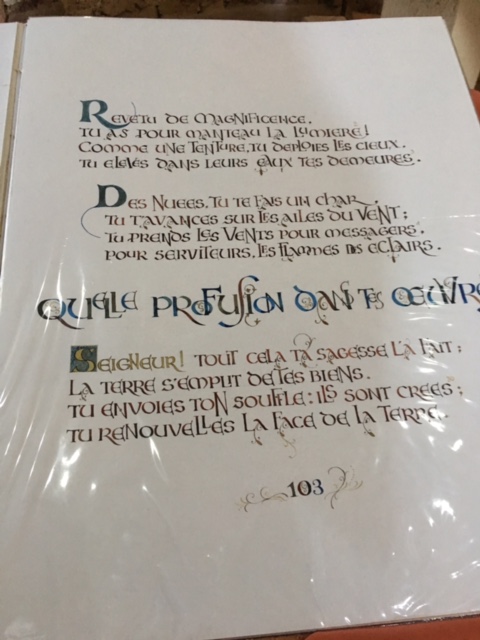 Revetu de magnificence.
Tu as pour manteau la lumiere!
Comme une tenture, tu deploies les cieux.
Tu eleves dans leurs eaux tes demeures.
Des nuees, tu te fais un char,
Tu t'avances sur les ailes du vent;
Tu prends les vents pour messagers,
Pour serviteurs, les flammes des eclairs.
Quelle profusion dans tes œuvres
Seigneur! Tout cela ta sagesse l'a fait;
La terre s'emplit de tes biens.
Tu envoies ton souffle: ils sont crees;
Tu renouvelles la face de la terre.
103